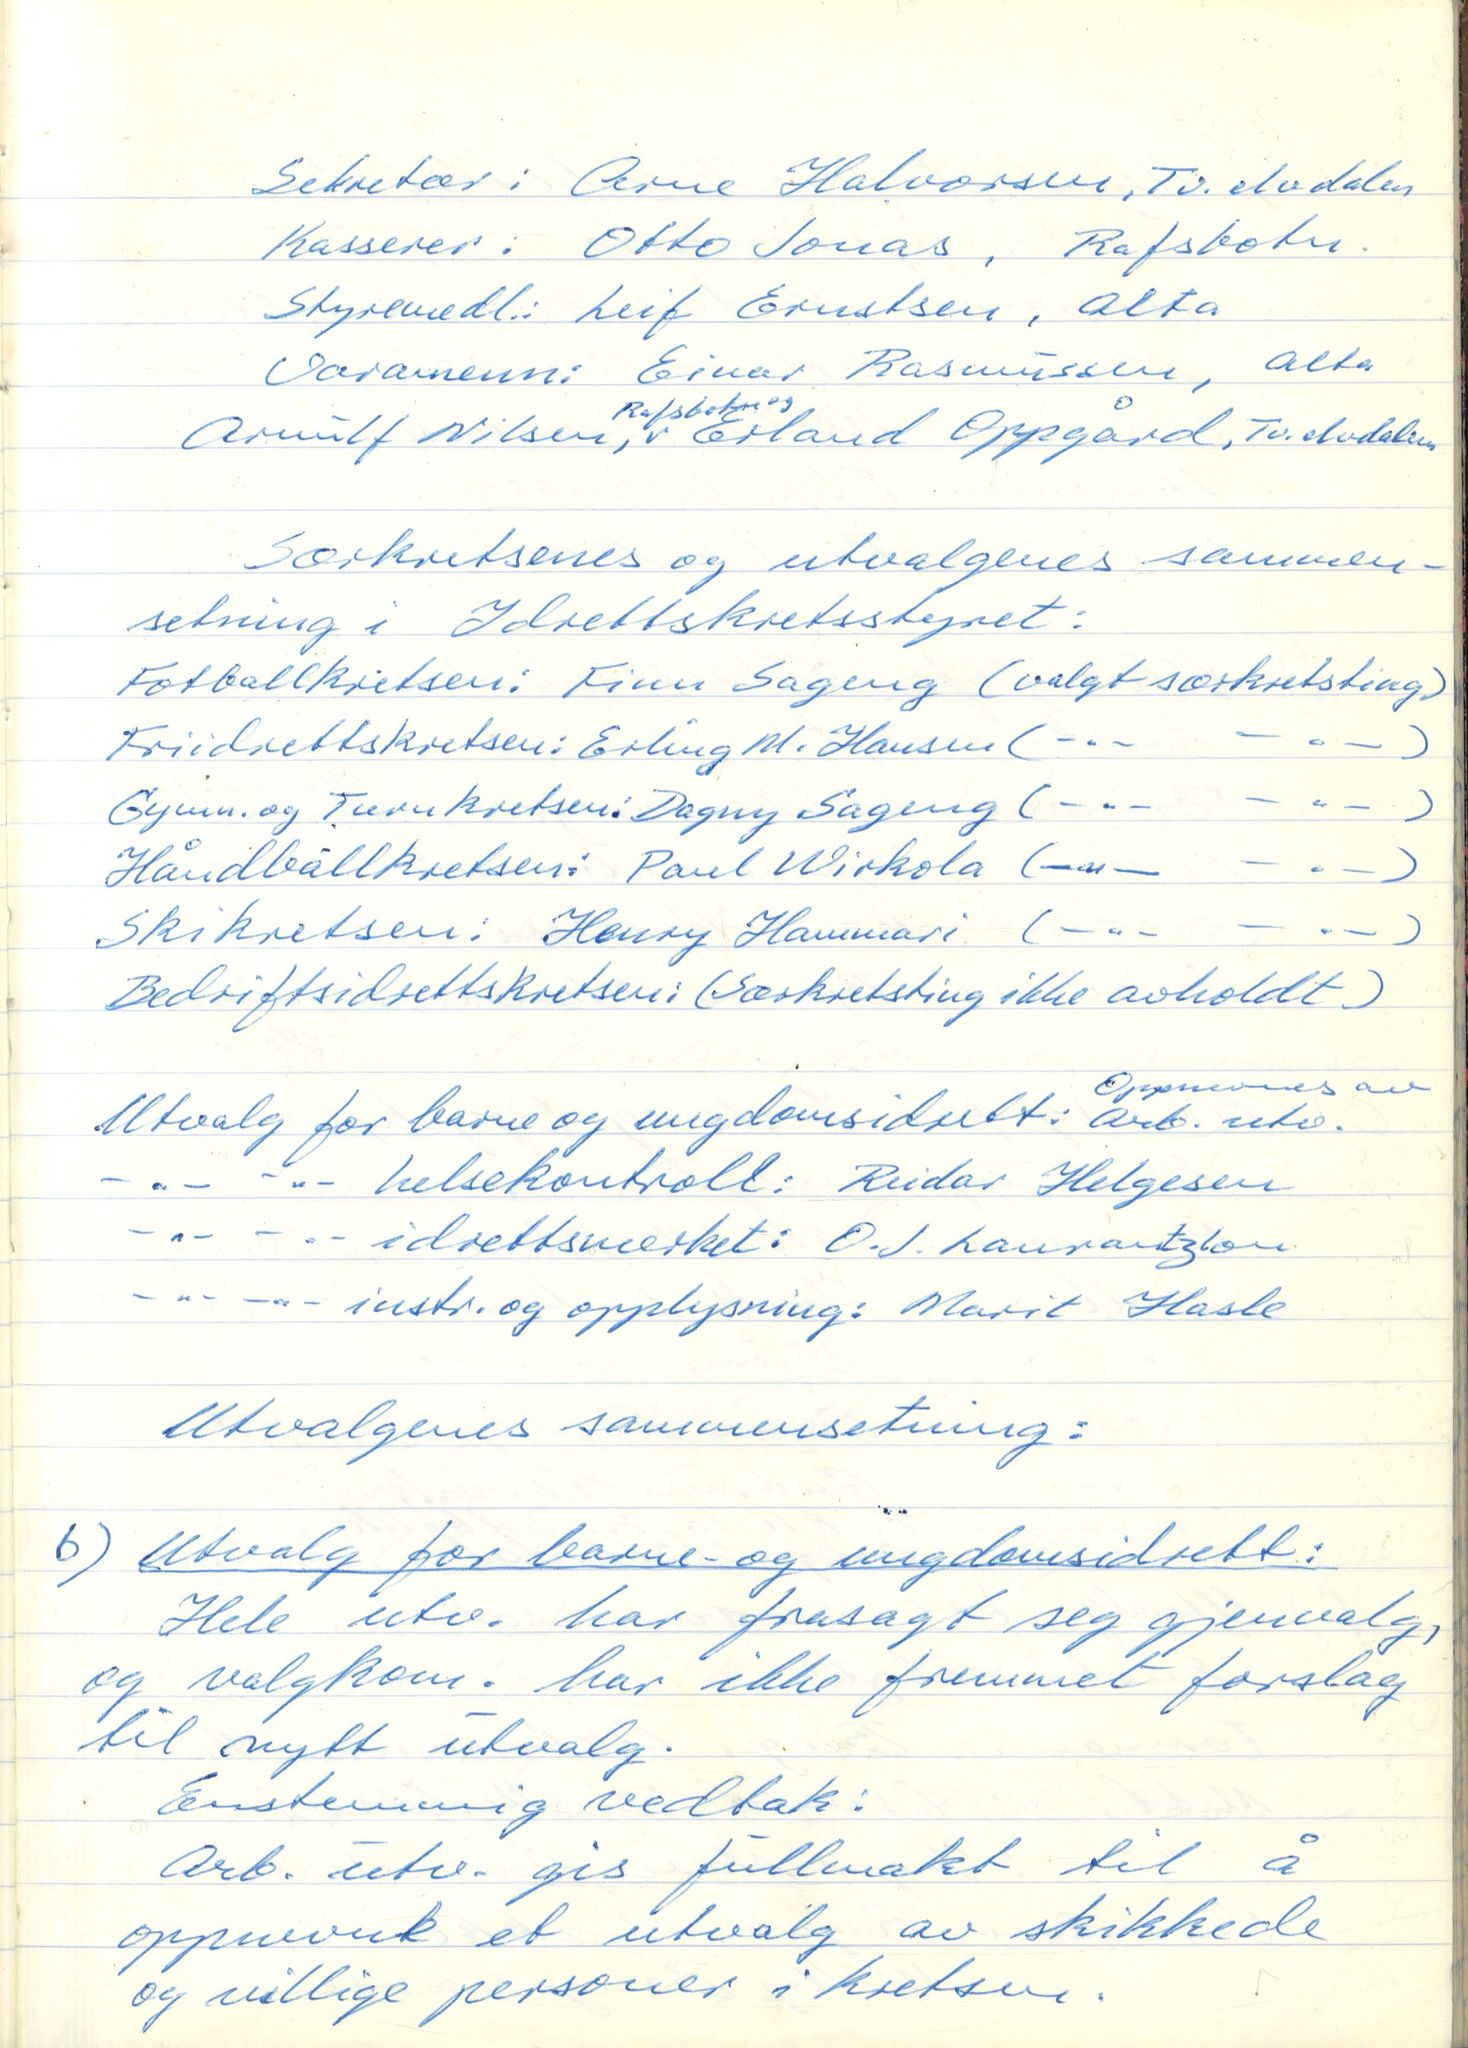 Sekretær: Arne Halvorsen, Tv. elvdalen
Kasserer: Otto Jonas, Rafsbotn.
Styremedl.: Leif Ernstsen, Alta
Varamenn: Einar Rasmussen, Alta
Arnulf Nilsen, Rafsbotn og Erland Oppgård, Tv. elvdalen
Særkretsenes og utvalgenes sammen-
setning i Idrettskretsstyret:
Fotballkretsen: Finn Sageng (valgt særkretsting)
Friidrettskretsen: Erling M. Hansen ( -"- -"- )
Gymn. og Turnkretsen: Dagny Sageng ( -"- -"- )
Håndballkretsen: Paul Wirkola ( -"- -"- )
Skikretsen: Henry Hammari ( -"- -"- )
Bedriftsidrettskretsen: (Særkretsting ikke avholdt)
Utvalg for barne og ungdomsidrett: Oppnevnes av arb. utv.
-"- -"- helsekontroll: Reidar Helgesen
-"- -"- idrettsmerket: O.J. Laurantzon
-"- -"- instr. og opplysning: Marit Hasle
Utvalgenes sammensetning:
b) Utvalg for barne- og ungdomsidrett:
Hele utv. har frasagt seg gjenvalg,
og valgkom. har ikke fremmet forslag
til nytt utvalg.
Enstemmig vedtak:
Arb. utv. gis fullmakt til å
oppnevnt et utvalg av skikkede
og villige personer i kretsen.